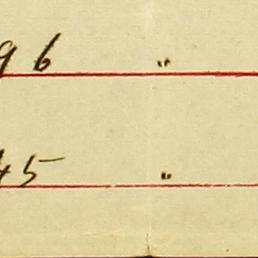 96 "
45 "